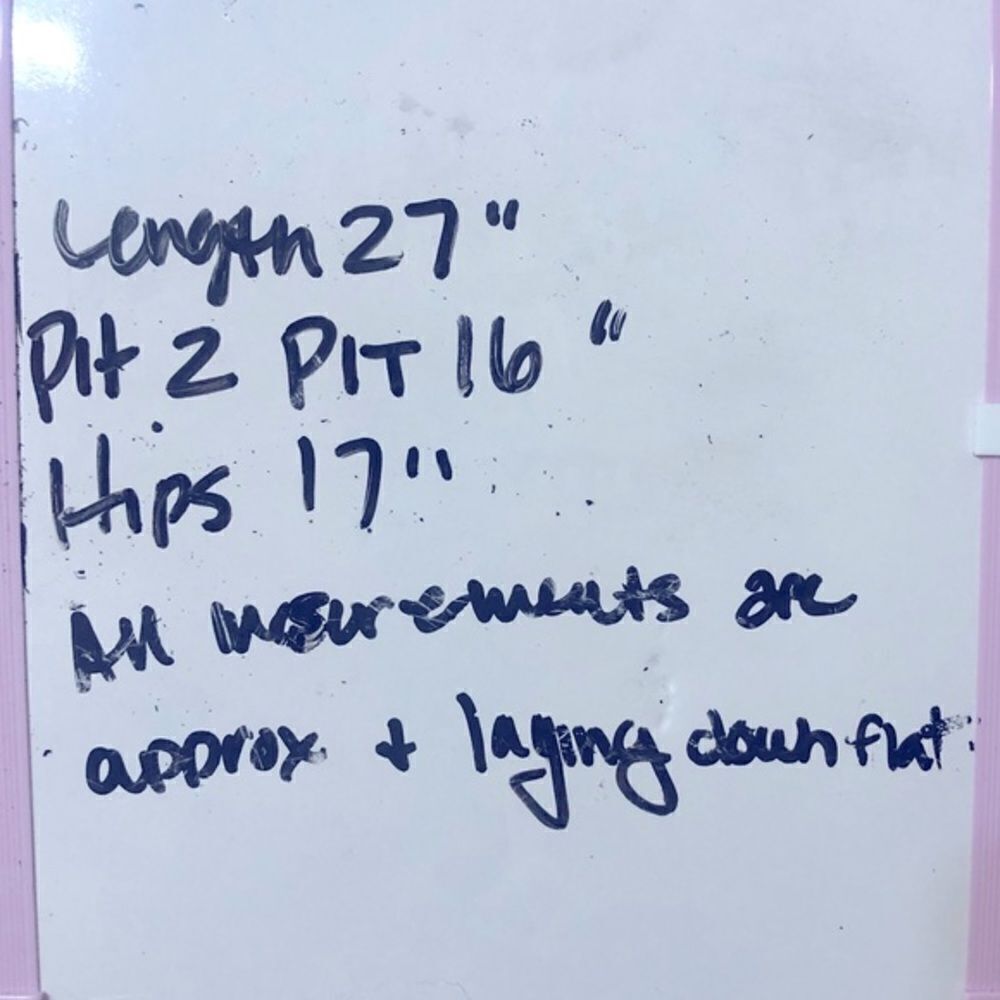 Length 27"
Pit 2 PIT 16 "
Hips 17"
All mesurements are
approx + laying down flat